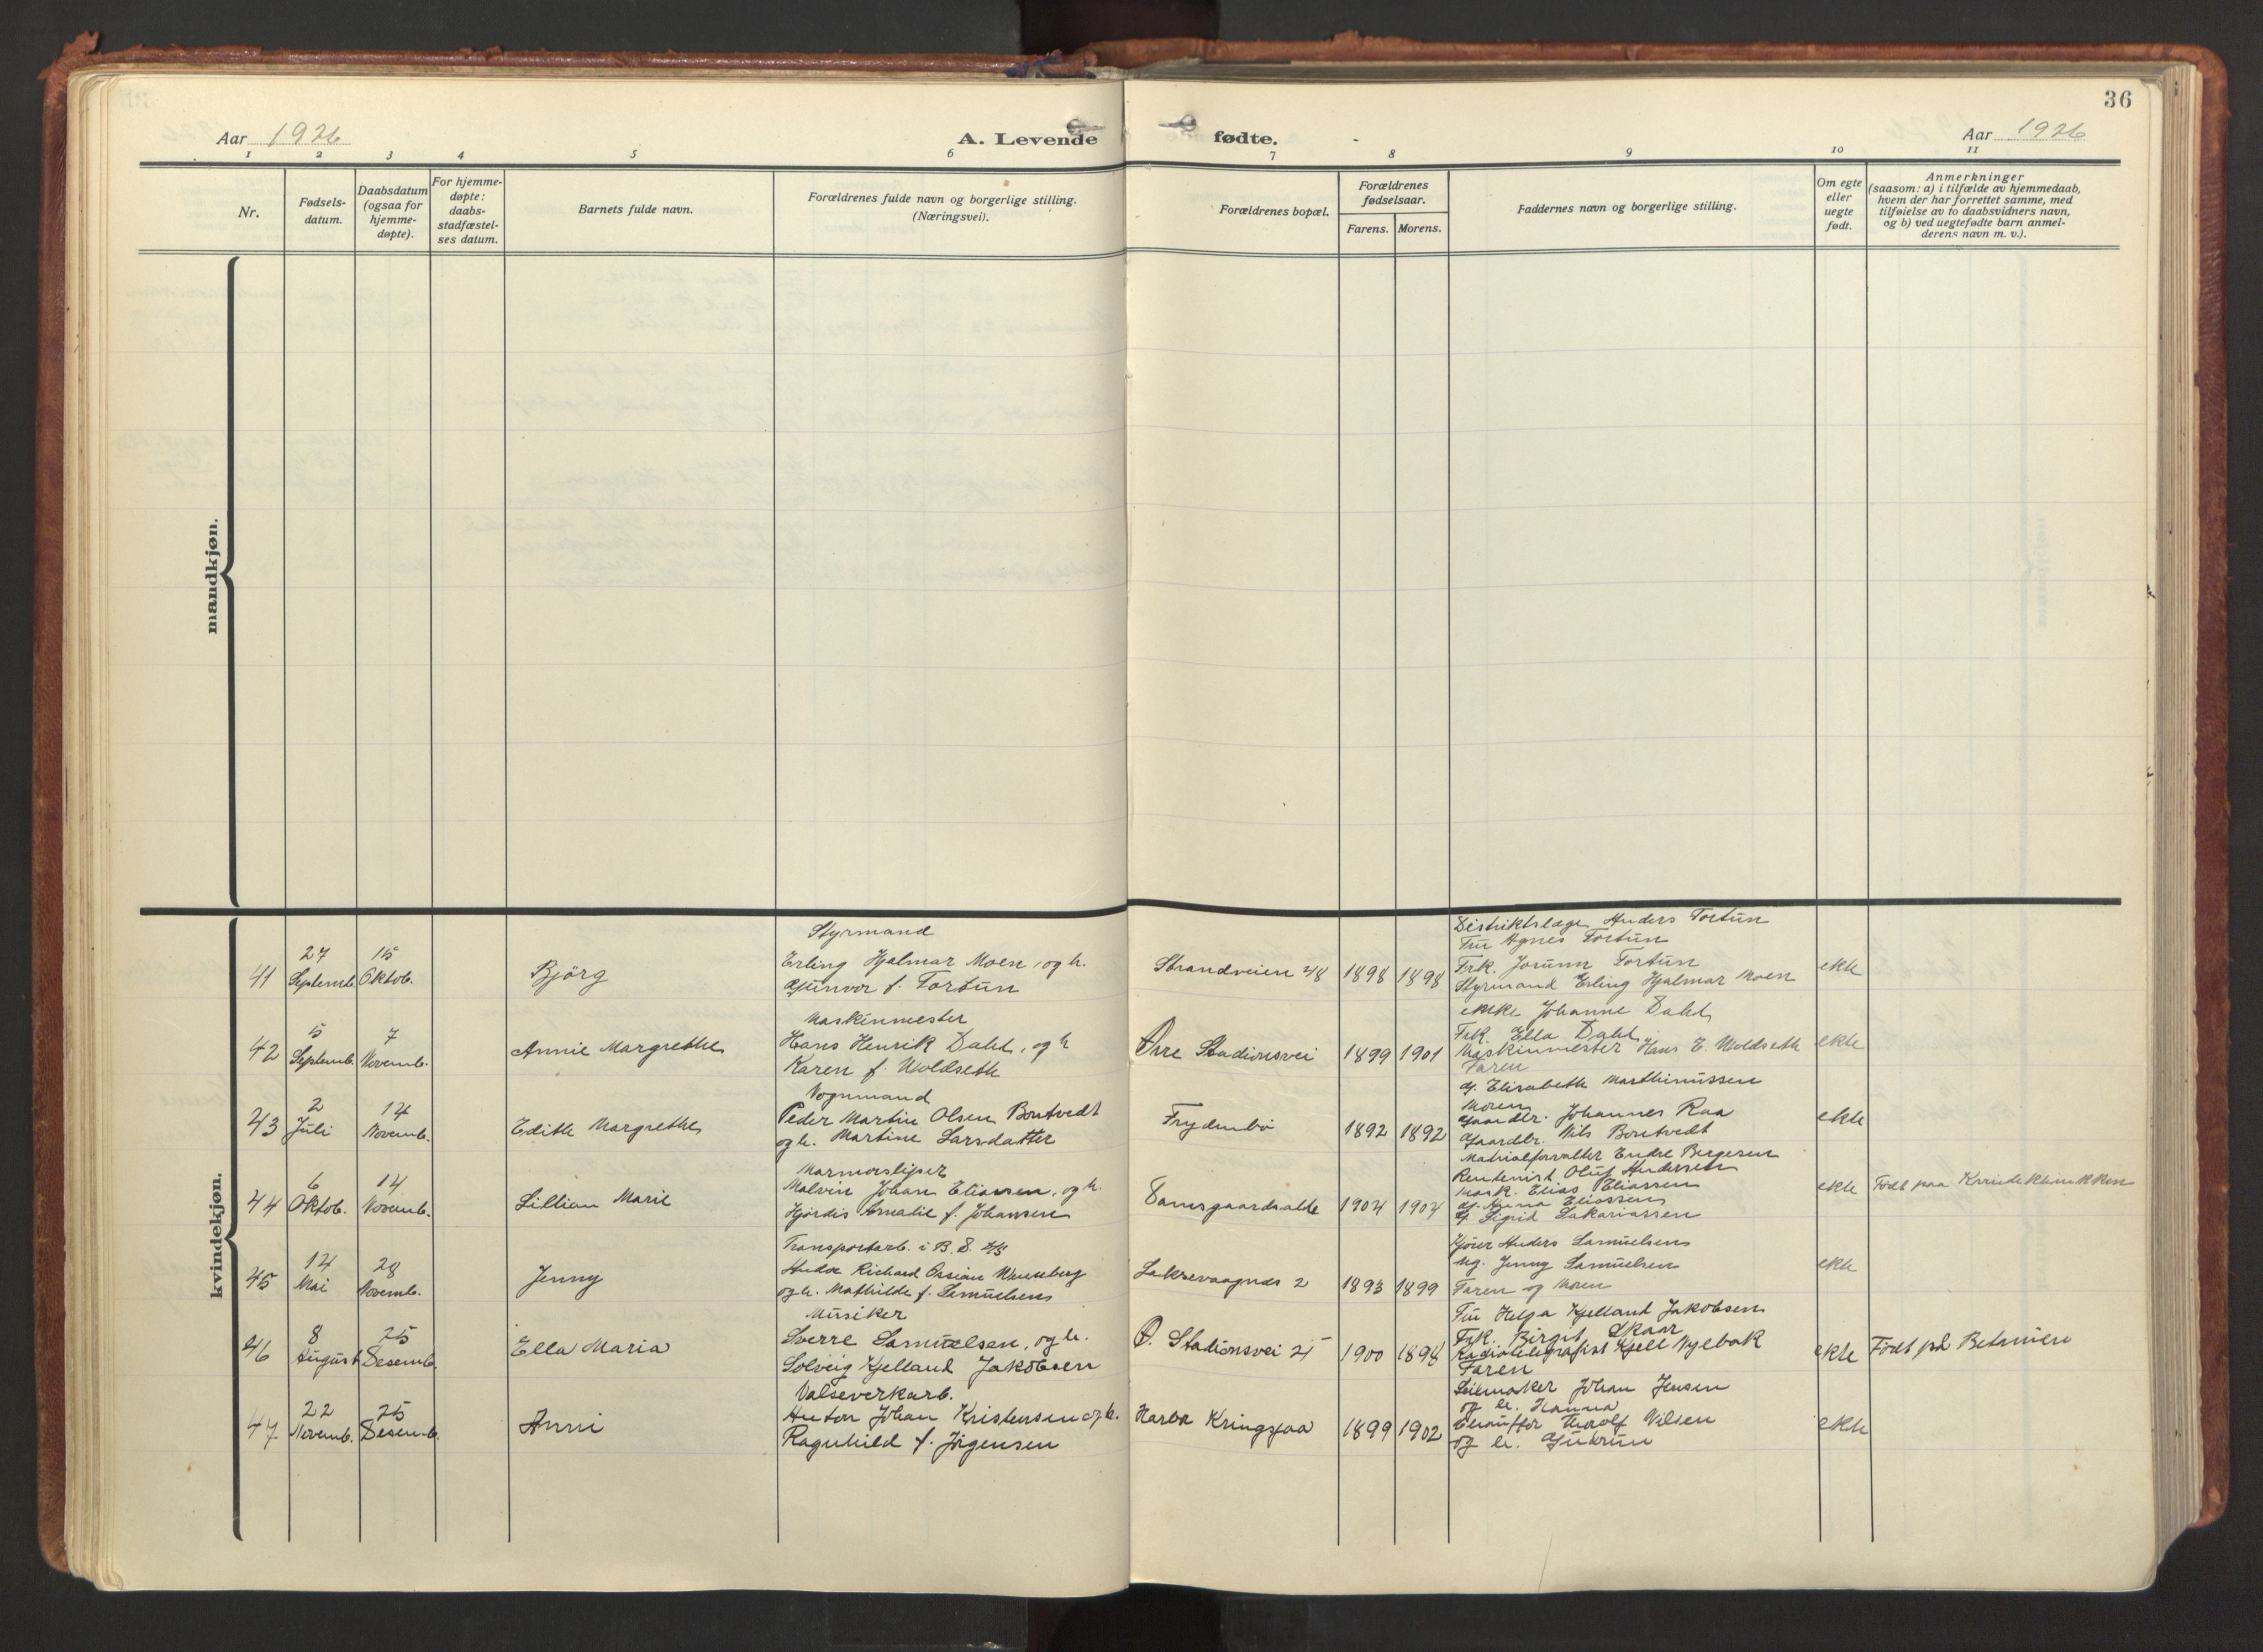 36
Aar 1926
A. Levende fødte.
Aar 1926
1 2 3 4 5 6 7 8 9 10 11
Nr.
Fødsels-
datum.
Daabsdatum
(ogsaa for
hjemme-
døpte).
For hjemme-
døpte:
daabs-
stadfæstel-
ses datum.
Barnets fulde navn.
Forældrenes fulde navn og borgerlige stilling.
(Næringsvei).
Forældrenes bopæl.
Forældrenes
fødselsaar.
Farens. Morens.
Faddernes navn og borgerlige stilling.
Om egte
eller
uegte
født.
Anmerkninger
(saasom: a) i tilfælde av hjemmedaab,
hvem der har forrettet samme, med
tilføielse av to daabsvidners navn,
og b) ved uegtefødte barn anmel-
derens navn m. v.).
mandkjøn.
kvindekjøn.
41
27
Septemb.
15
Oktob.
Björg
Styrmand
Erling Hjalmar Moen, og h.
Gunvor f. Fortun
Strandveien 48
1898
1898
Distriktslæge Anders Fortun
Fru Agnes Fortun
Frk. Jorunn Fortun
Styrmand Erling Hjalmar Moen
ekte
42
5
Septemb.
7
Novemb.
Annie Margrethe
Maskinmester
Hans Henrik Dahl, og h
Karen f. Woldseth
Øvre Stadionsvei
1899
1901
enke Johanne Dahl
Frk. Ella Dahl
Maskinmester Hans E. Woldseth
Faren
ekte
43
2
Juli
14
Novemb.
Edith Margrethe
Vognmand
Peder Martin Olsen Bontvedt
og h. Martine Larsdatter
Frydenbö
1892
1892
g. Elisabeth Marthinussen
Moren
Gaardbr. Johannes Raa
Gaardbr. Nils Bontvedt
ekte
44
6
Oktob.
14
Novemb.
Lillian Marie
Marmorsliper
Malvin Johan Eliassen, og h.
Hjördis Amalie f. Johansen
Damsgaardsalle
1904
1904
Matrialforvalter Endre Bergesen
Rentenist Oluf Andersen
Mask. Elias Eliassen
g. Anna Eliassen
g. Sigrid Sakariassen
ekte
Födt paa Kvindeklinikken
45
14
Mai
28
Novemb.
Jenny
Transportarb. i B. S. A/S
Andor Richard Ossian Wennberg
og h. Mathilde f. Samuelsen
Laksevaagnes 2
1893
1899
Kjörer Anders Samuelsen
Ug. Jenny Samuelsen
Faren og Moren
ekte
46
8
August
25
Desemb.
Ella Maria
Musiker
Sverre Samuelsen, og h.
Solveig Kjelland Jakobsen
Ö. Stadionsvei 21
1900
1898
Fru Helga Kjelland Jakobsen
Frk. Birgit Skaar
Radiotelegrafist Kjell Nylbak
Faren
ekte
Födt på Betanien
47
22
Novemb.
25
Desemb.
Anni
Valseverkarb.
Anton Johan Kristensen og h.
Ragnhild f. Jörgensen
Kringsjaa
1899
1902
Seilmaker Johan Jensen
og h. Hanna
Chauffør Thorolf Nilsen
og h. Gudrun
ekte